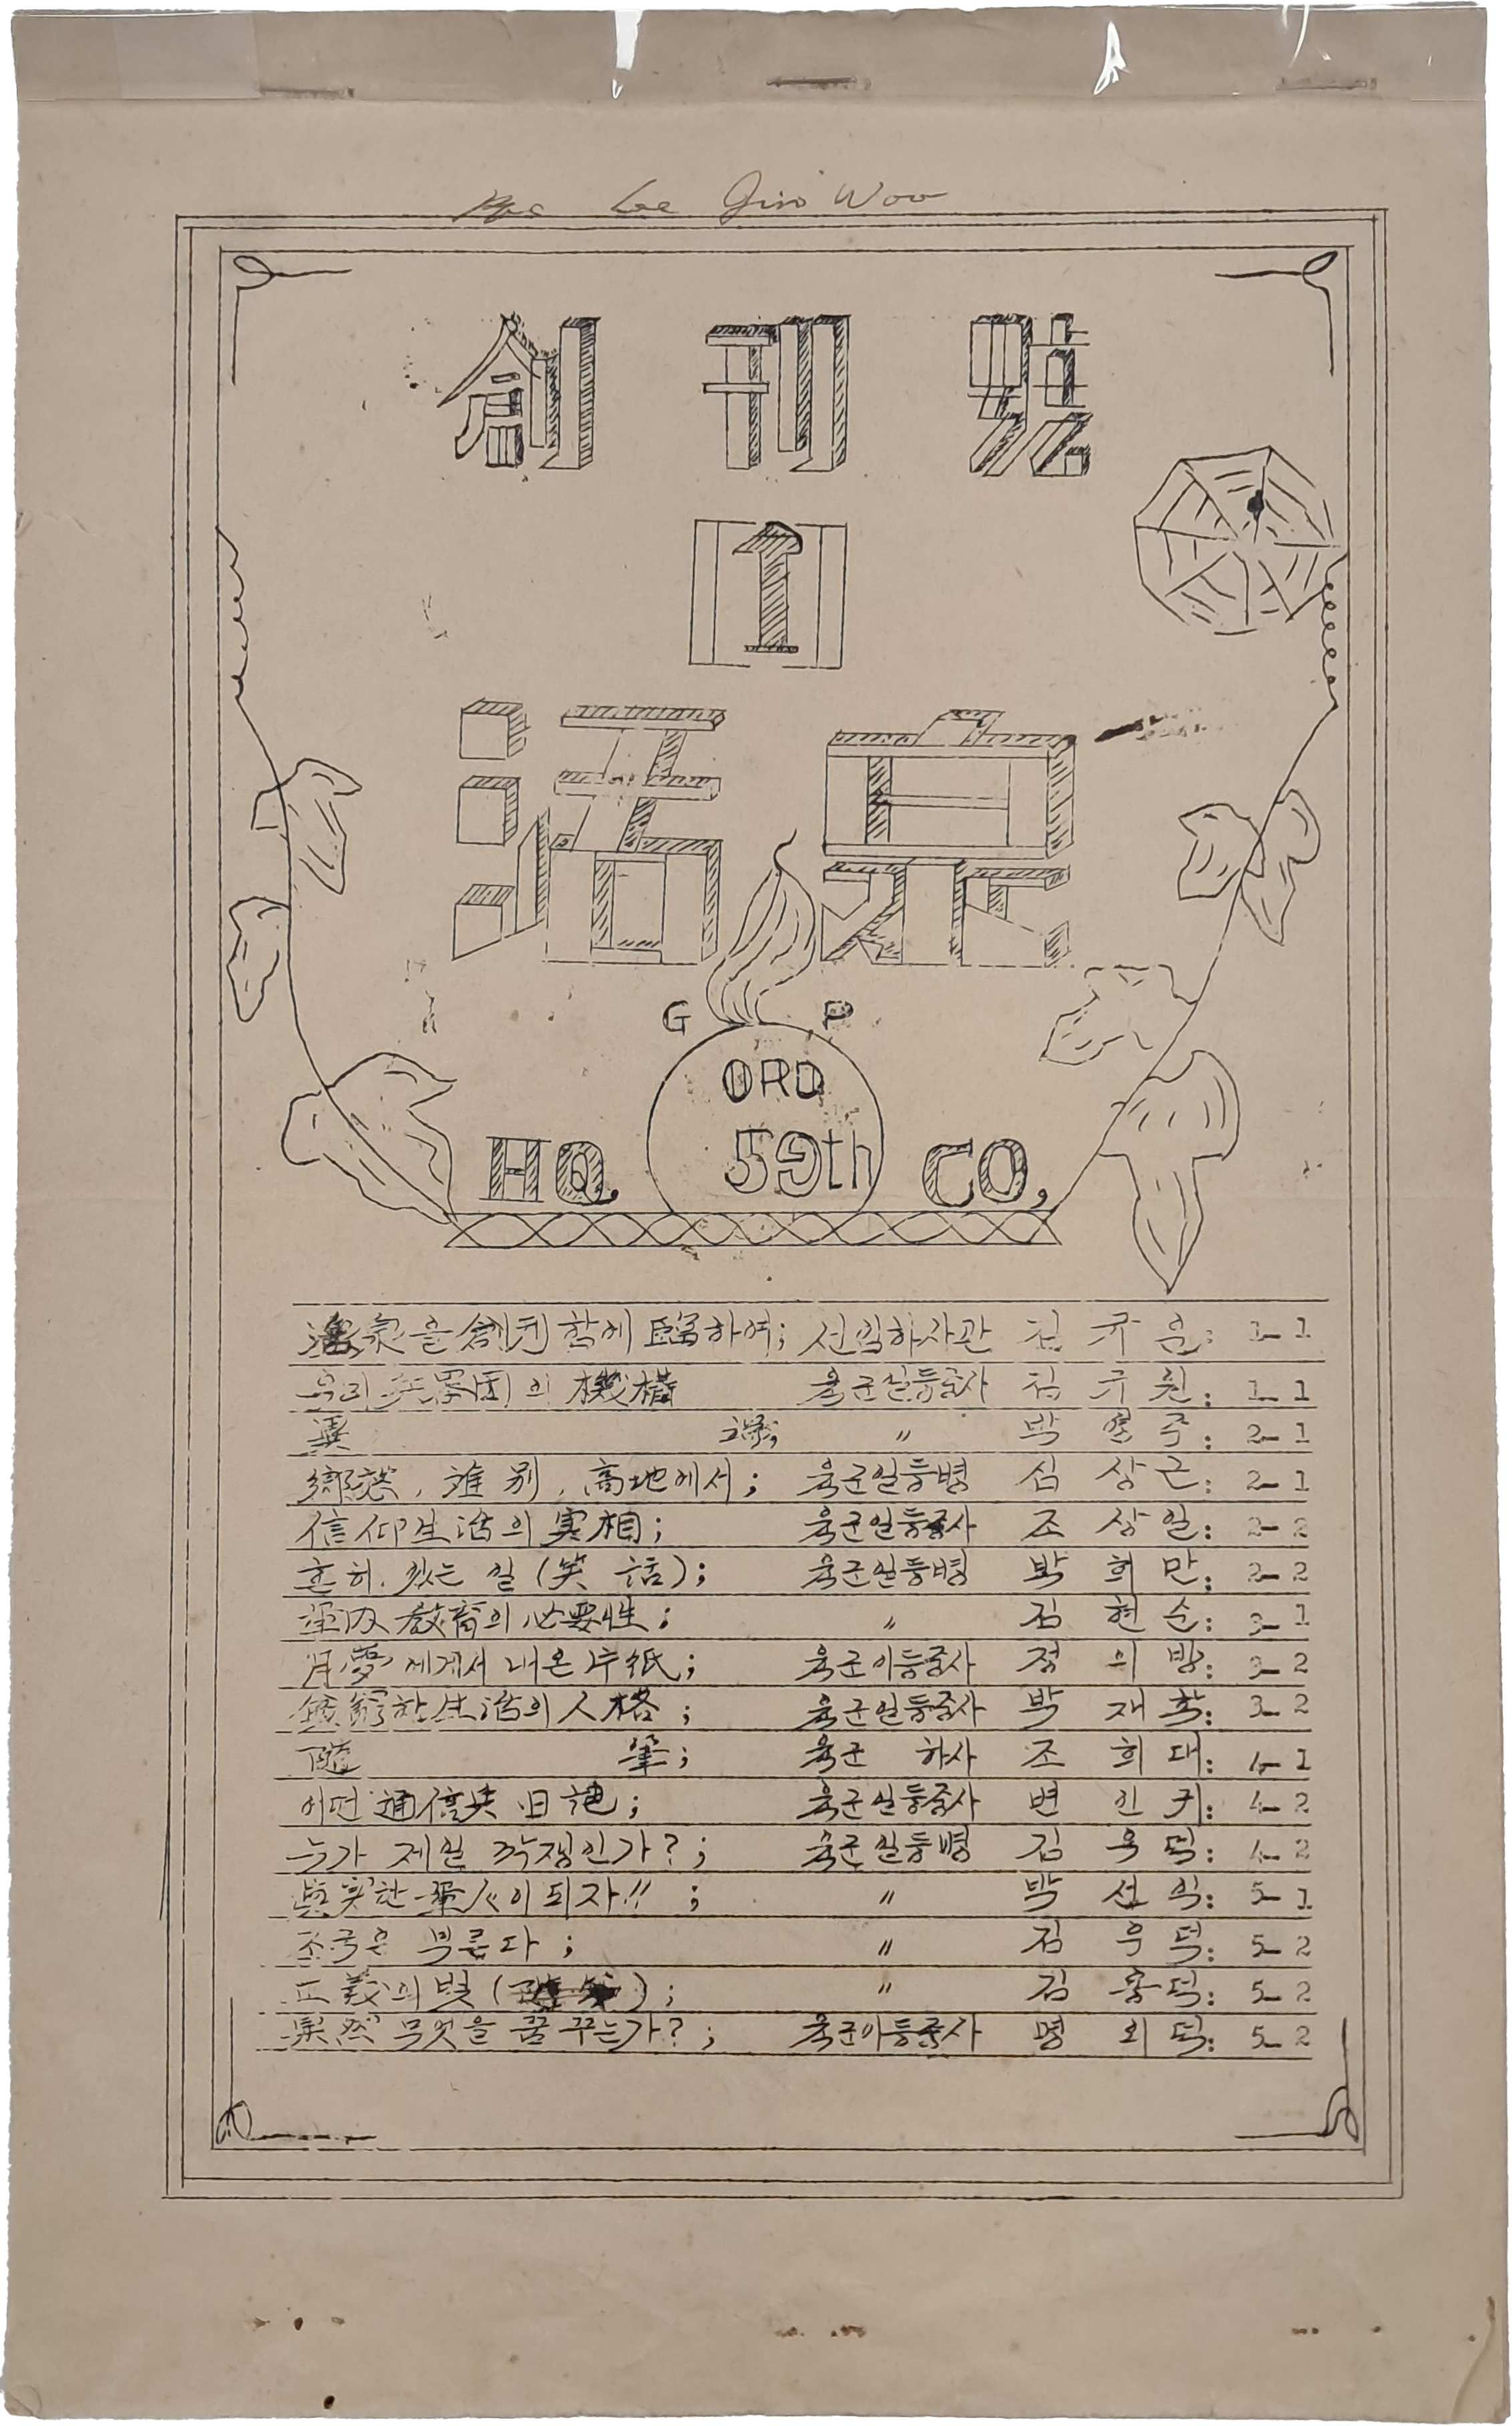 Lee Jin Woo
創刊號
1
活泉
G P
ORD
HQ. 59th CO,
活泉을 創刊함에 臨하여; 선임하사관 김규윤: 1-1
우리 兵器団의 機構 육군일등중사 김규원: 1-1
選 〃 박 주: 2-1
鄕愁, 離別, 高地에서; 육군일등병 심상근: 2-1
信仰生活의 実相; 육군일등중사 조상일: 2-2
흔히 있는 일(笑話); 육군일등병 박희만: 2-2
軍內 教育의 必要性; 〃 김현순: 3-1
月夢에게서 내온 片紙; 육군이등중사 정의방: 3-2
生活의 人格; 육군일등중사 박재학: 3-2
隨筆; 육군 하사 조희대: 4-1
어떤 通信兵 日記; 육군일등중사 변인귀: 4-2
누가 제일 깍쟁인가?; 육군일등병 김우덕: 4-2
眞実한 軍人이 되자!! ; 〃 박선익: 5-1
조국은 부른다; 〃 김우덕: 5-2
正義의 빛 ( ); 〃 김용덕: 5-2
果然 무엇을 꿈꾸는가?; 육군이등중사 명외덕: 5-2